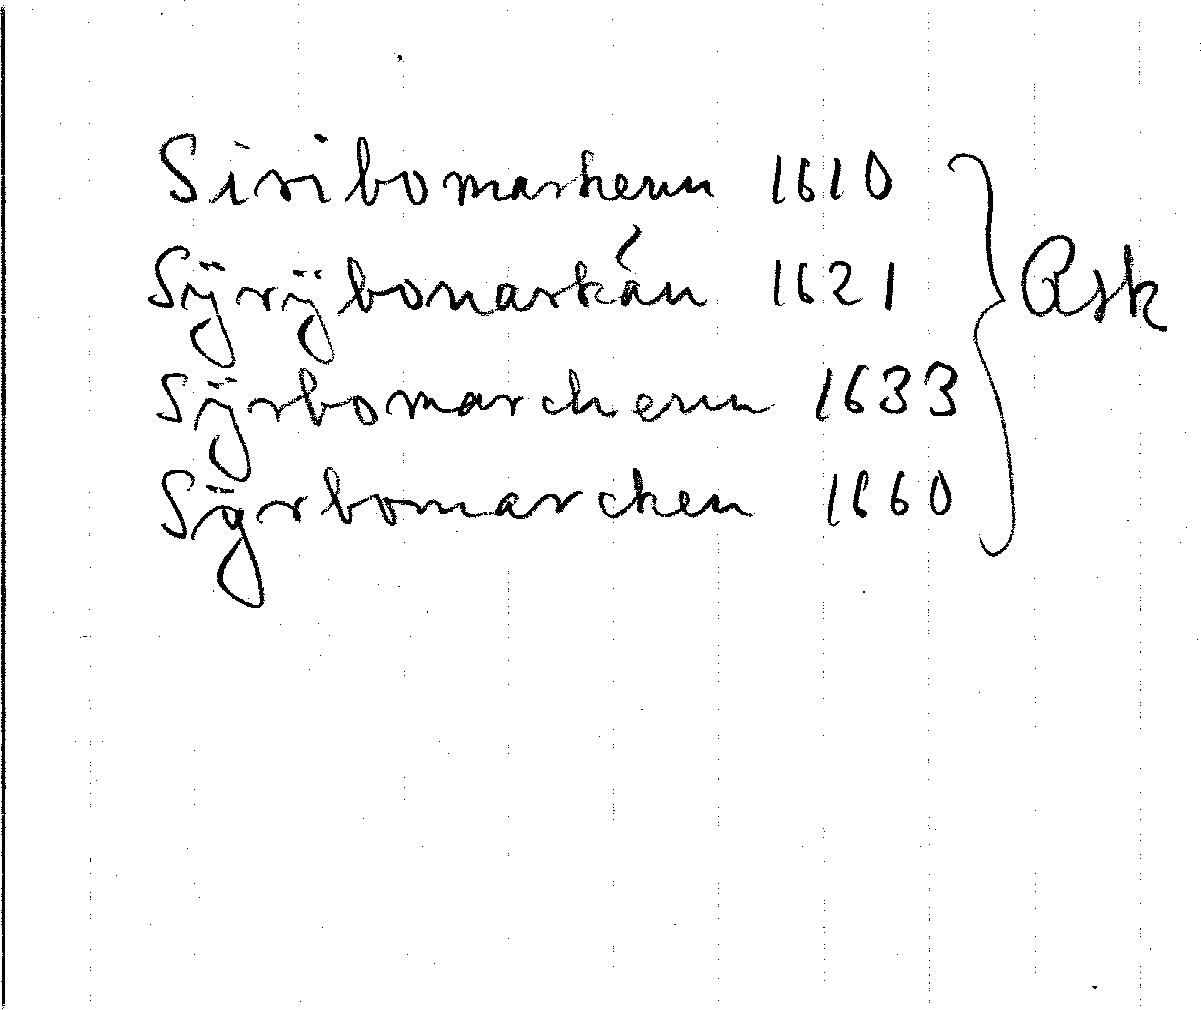 Siribomarkenn 1610
Sÿrÿbomarkån 1621
Sÿrbomarchenn 1633
Sÿrbomarcken 1660
Ask